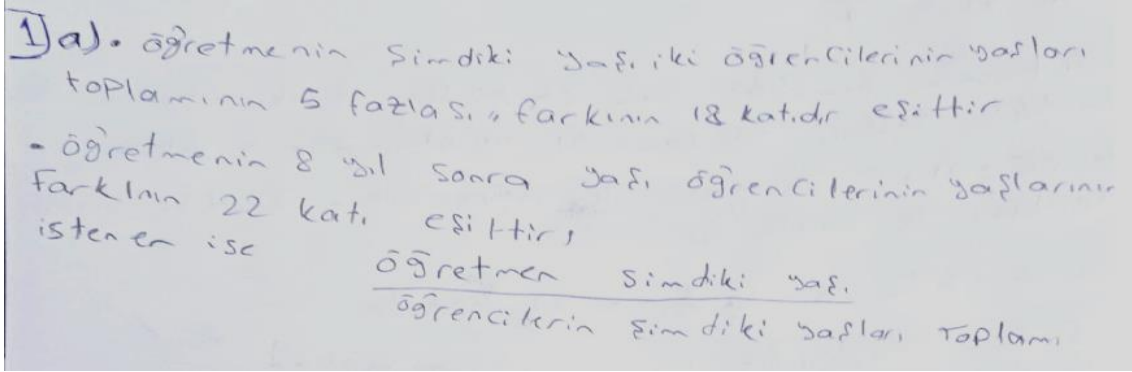 1)a). öğretmenin Simdiki yaşı iki öğrencilerinin yasları
toplamının 5 fazlası, farkının 18 katıdır eşittir
- öğretmenin 8 yıl sonra yaşı öğrencilerinin yaşlarının
farkının 22 katı eşittir,
istenen ise
öğretmen simdiki yaşı
öğrencilerin şimdiki yaşları Toplamı